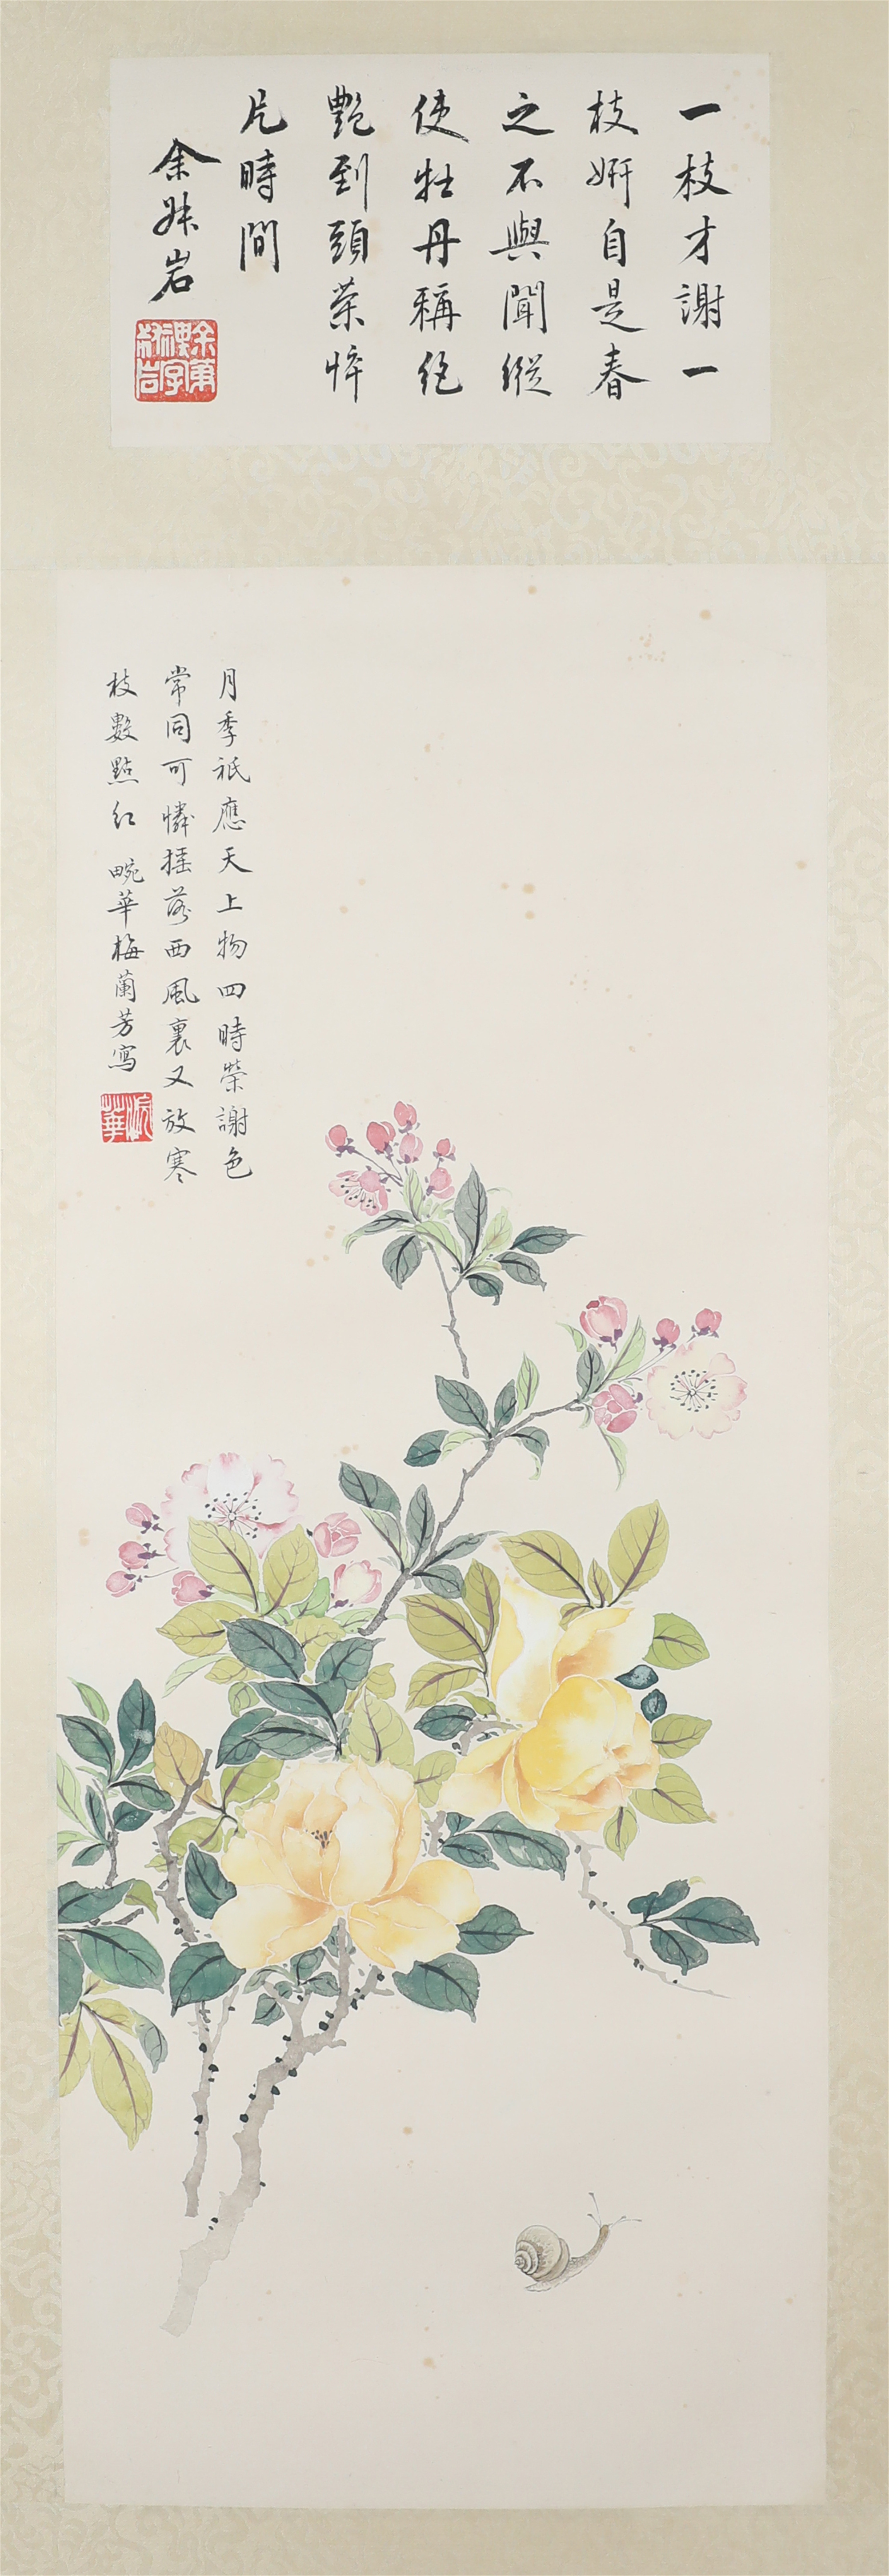 一枝才謝一
枝妍自是春
之不與聞縱
使牡丹稱絕
艷到頭榮悴
片時間
余姝岩
月季祇應天上物四時榮謝色
常同可憐搖落西風裏又放寒
枝數點紅 畹華梅蘭芳寫
畹華